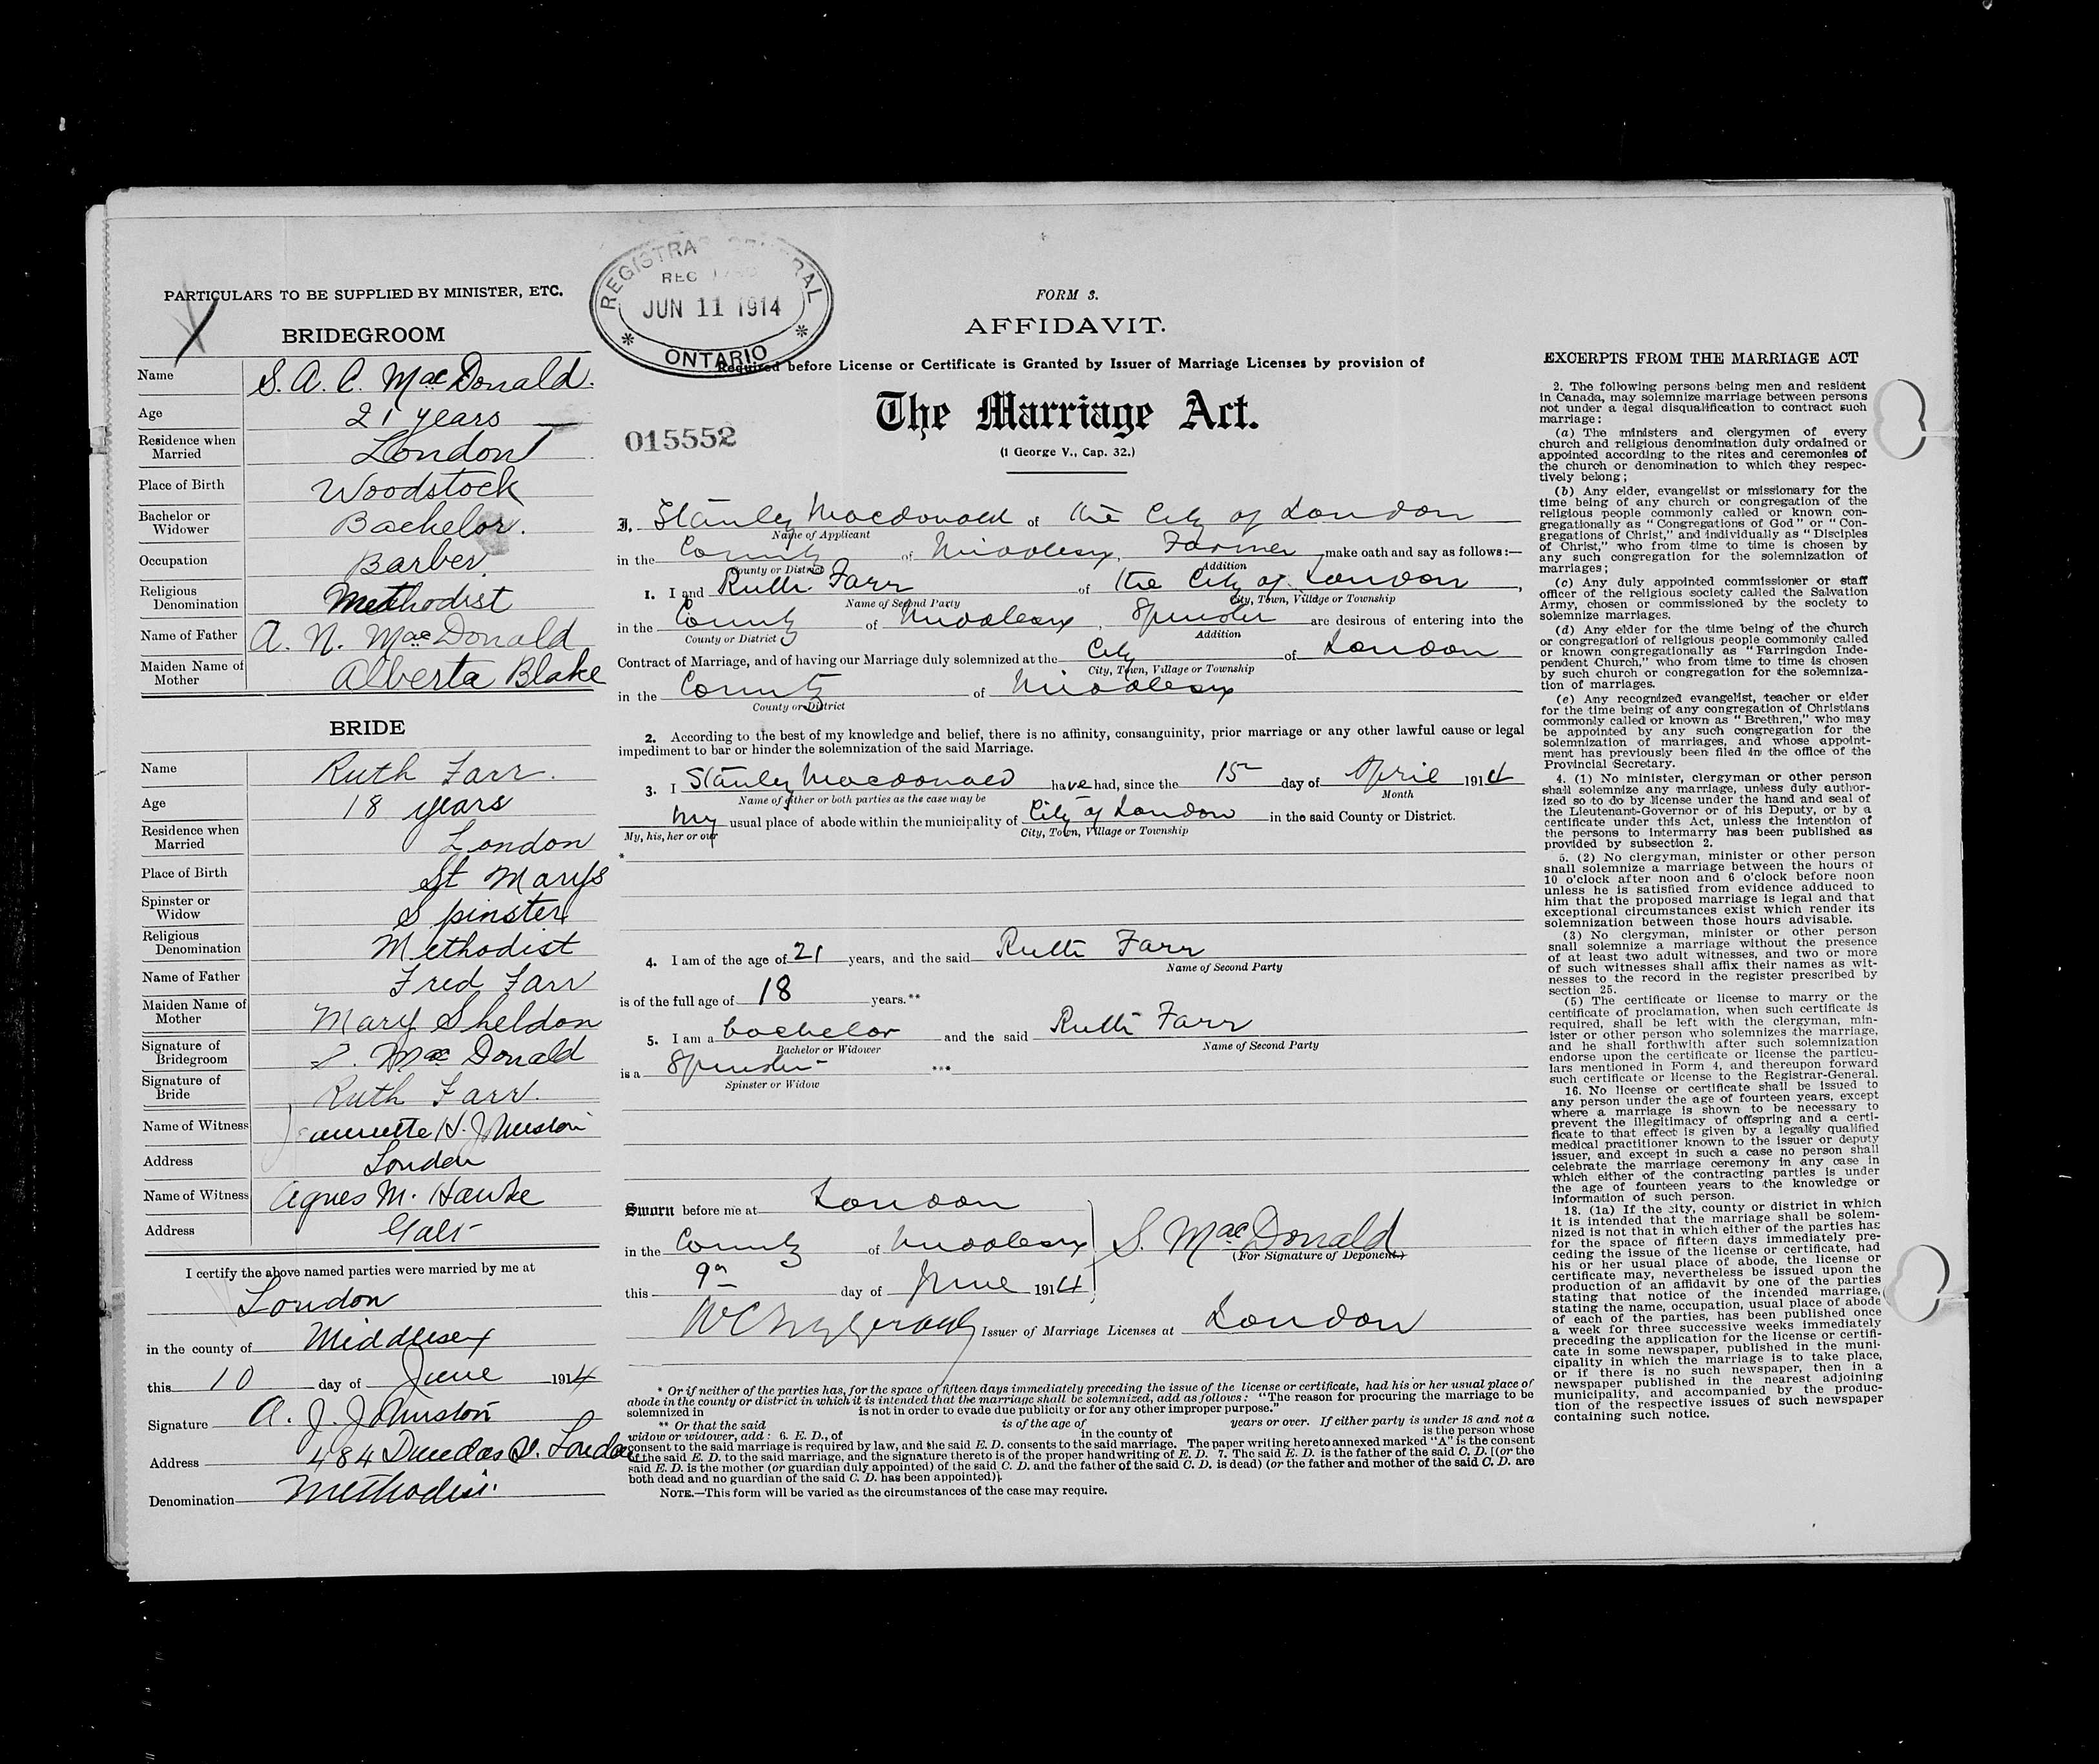 PARTICULARS TO BE SUPPLIED BY MINISTER, ETC.
BRIDEGROOM
Name S. A. C. MacDonald.
Age 21 years
Residence when Married London
Place of Birth Woodstock
Bachelor or Widower Bachelor.
Occupation Barber
Religious Denomination Methodist
Name of Father A. N. MacDonald
Maiden Name of Mother Alberta Blake
BRIDE
Name Ruth Farr.
Age 18 years
Residence when Married London
Place of Birth St Marys
Spinster or Widow Spinster
Religious Denomination Methodist
Name of Father Fred Farr
Maiden Name of Mother Mary Sheldon
Signature of Bridegroom S. MacDonald
Signature of Bride Ruth Farr.
Name of Witness H. Johnston
Address London
Name of Witness Agnes M.
Address Galt
I certify the above named parties were married by me at
London
in the county of Middlesex
this 10 day of June 1914
Signature A. J. Johnston
Address 484 Dundas St. London
Denomination Methodist
REGISTRAR GENERAL
REC
JUN 11 1914
* ONTARIO *
FORM 3.
AFFIDAVIT.
Required before License or Certificate is Granted by Issuer of Marriage Licenses by provision of
The Marriage Act.
015552
(1 George V., Cap. 32.)
I, Stanley Macdonald of the City of London
Name of Applicant
in the County of Middlesex, Farmer make oath and say as follows:—
County or District Addition
1. I and Ruth Farr of the City of London,
Name of Second Party City, Town, Village or Township
in the County of Middlesex, Spinster are desirous of entering into the
County or District Addition
Contract of Marriage, and of having our Marriage duly solemnized at the City of London
City, Town, Village or Township
in the County of Middlesex
County or District
2. According to the best of my knowledge and belief, there is no affinity, consanguinity, prior marriage or any other lawful cause or legal
impediment to bar or hinder the solemnization of the said Marriage.
3. I Stanley Macdonald have had, since the 15 day of April 1914
Name of either or both parties as the case may be Month
my usual place of abode within the municipality of City of London in the said County or District.
My, his, her or our City, Town, Village or Township
*
4. I am of the age of 21 years, and the said Ruth Farr
Name of Second Party
is of the full age of 18 years.**
5. I am a bachelor and the said Ruth Farr
Bachelor or Widower Name of Second Party
is a Spinster ***
Spinster or Widow
Sworn before me at London
in the County of Middlesex S. MacDonald
(For Signature of Deponent.)
this 9th day of June 1914
Issuer of Marriage Licenses at London
* Or if neither of the parties has, for the space of fifteen days immediately preceding the issue of the license or certificate, had his or her usual place of
abode in the county or district in which it is intended that the marriage shall be solemnized, add as follows: "The reason for procuring the marriage to be
solemnized in is not in order to evade due publicity or for any other improper purpose."
** Or that the said is of the age of years or over. If either party is under 18 and not a
widow or widower, add: 6. E. D., of in the county of is the person whose
consent to the said marriage is required by law, and the said E. D. consents to the said marriage. The paper writing hereto annexed marked "A" is the consent
of the said E. D. to the said marriage, and the signature thereto is of the proper handwriting of E. D. 7. The said E. D. is the father of the said C. D. [(or the
said E. D. is the mother (or guardian duly appointed) of the said C. D. and the father of the said C. D. is dead) (or the father and mother of the said C. D. are
both dead and no guardian of the said C. D. has been appointed)].
NOTE.—This form will be varied as the circumstances of the case may require.
EXCERPTS FROM THE MARRIAGE ACT
2. The following persons being men and resident
in Canada, may solemnize marriage between persons
not under a legal disqualification to contract such
marriage:
(a) The ministers and clergymen of every
church and religious denomination duly ordained or
appointed according to the rites and ceremonies of
the church or denomination to which they respec-
tively belong;
(b) Any elder, evangelist or missionary for the
time being of any church or congregation of the
religious people commonly called or known con-
gregationally as "Congregations of God" or "Con-
gregations of Christ," and individually as "Disciples
of Christ," who from time to time is chosen by
any such congregation for the solemnization of
marriages;
(c) Any duly appointed commissioner or staff
officer of the religious society called the Salvation
Army, chosen or commissioned by the society to
solemnize marriages.
(d) Any elder for the time being of the church
or congregation of religious people commonly called
or known congregationally as "Farringdon Inde-
pendent Church," who from time to time is chosen
by such church or congregation for the solemniza-
tion of marriages.
(e) Any recognized evangelist, teacher or elder
for the time being of any congregation of Christians
commonly called or known as "Brethren," who may
be appointed by any such congregation for the
solemnization of marriages, and whose appoint-
ment has previously been filed in the office of the
Provincial Secretary.
4. (1) No minister, clergyman or other person
shall solemnize any marriage, unless duly author-
ized so to do by license under the hand and seal of
the Lieutenant-Governor or of his Deputy, or by a
certificate under this Act, unless the intention of
the persons to intermarry has been published as
provided by subsection 2.
5. (2) No clergyman, minister or other person
shall solemnize a marriage between the hours of
10 o'clock after noon and 6 o'clock before noon
unless he is satisfied from evidence adduced to
him that the proposed marriage is legal and that
exceptional circumstances exist which render its
solemnization between those hours advisable.
(3) No clergyman, minister or other person
shall solemnize a marriage without the presence
of at least two adult witnesses, and two or more
of such witnesses shall affix their names as wit-
nesses to the record in the register prescribed by
section 25.
(5) The certificate or license to marry or the
certificate of proclamation, when such certificate is
required, shall be left with the clergyman, min-
ister or other person who solemnizes the marriage,
and he shall forthwith after such solemnization
endorse upon the certificate or license the particu-
lars mentioned in Form 4, and thereupon forward
such certificate or license to the Registrar-General.
16. No license or certificate shall be issued to
any person under the age of fourteen years, except
where a marriage is shown to be necessary to
prevent the illegitimacy of offspring and a certi-
ficate to that effect is given by a legally qualified
medical practitioner known to the issuer or deputy
issuer, and except in such a case no person shall
celebrate the marriage ceremony in any case in
which either of the contracting parties is under
the age of fourteen years to the knowledge or
information of such person.
18. (1a) If the city, county or district in which
it is intended that the marriage shall be solem-
nized is not that in which either of the parties has
for the space of fifteen days immediately pre-
ceding the issue of the license or certificate, had
his or her usual place of abode, the license or
certificate may, nevertheless be issued upon the
production of an affidavit by one of the parties
stating that notice of the intended marriage,
stating the name, occupation, usual place of abode
of each of the parties, has been published once
a week for three successive weeks immediately
preceding the application for the license or certifi-
cate in some newspaper, published in the muni-
cipality in which the marriage is to take place,
or if there is no such newspaper, then in a
newspaper published in the nearest adjoining
municipality, and accompanied by the produc-
tion of the respective issues of such newspaper
containing such notice.